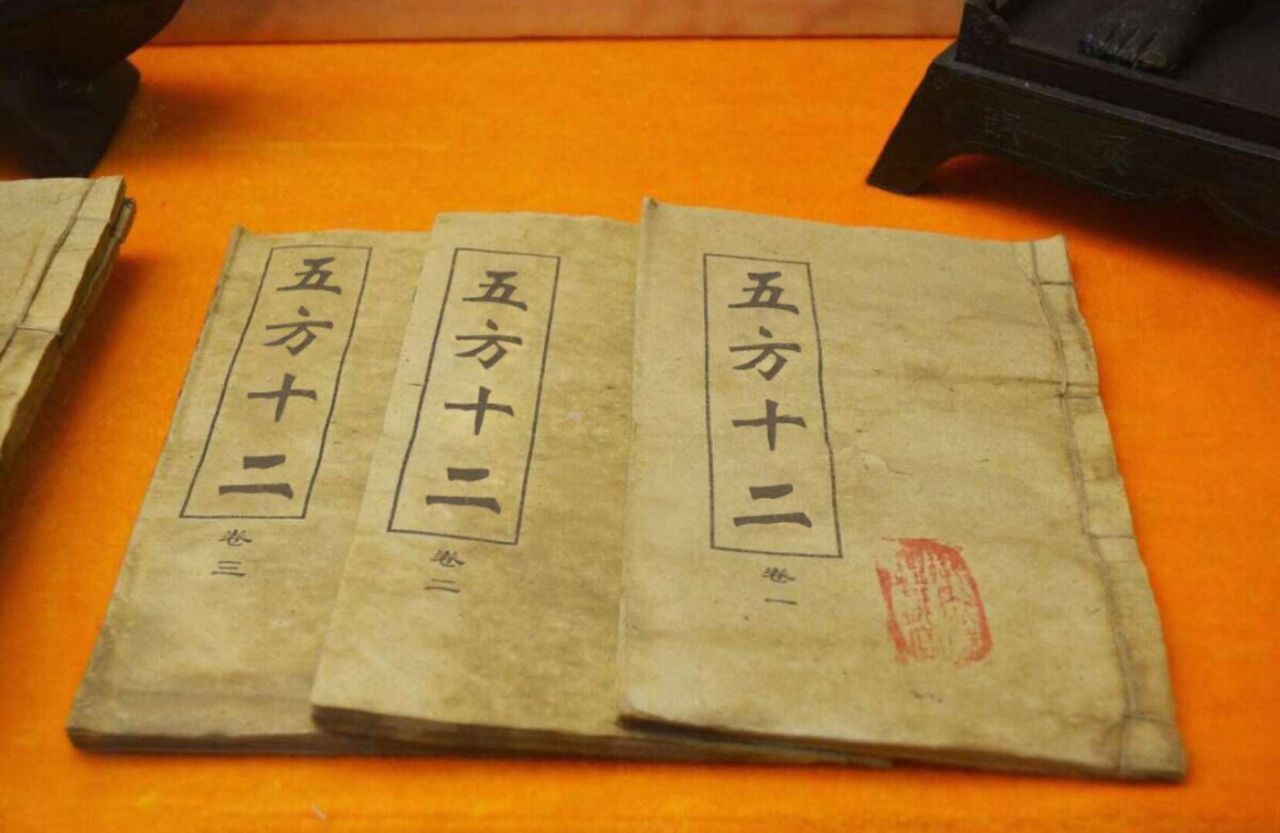 五方十二
卷一
五方十二
卷二
五方十二
卷三